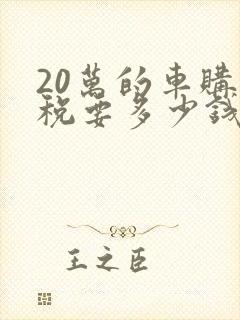 20萬的車購
稅要多少錢
王之臣